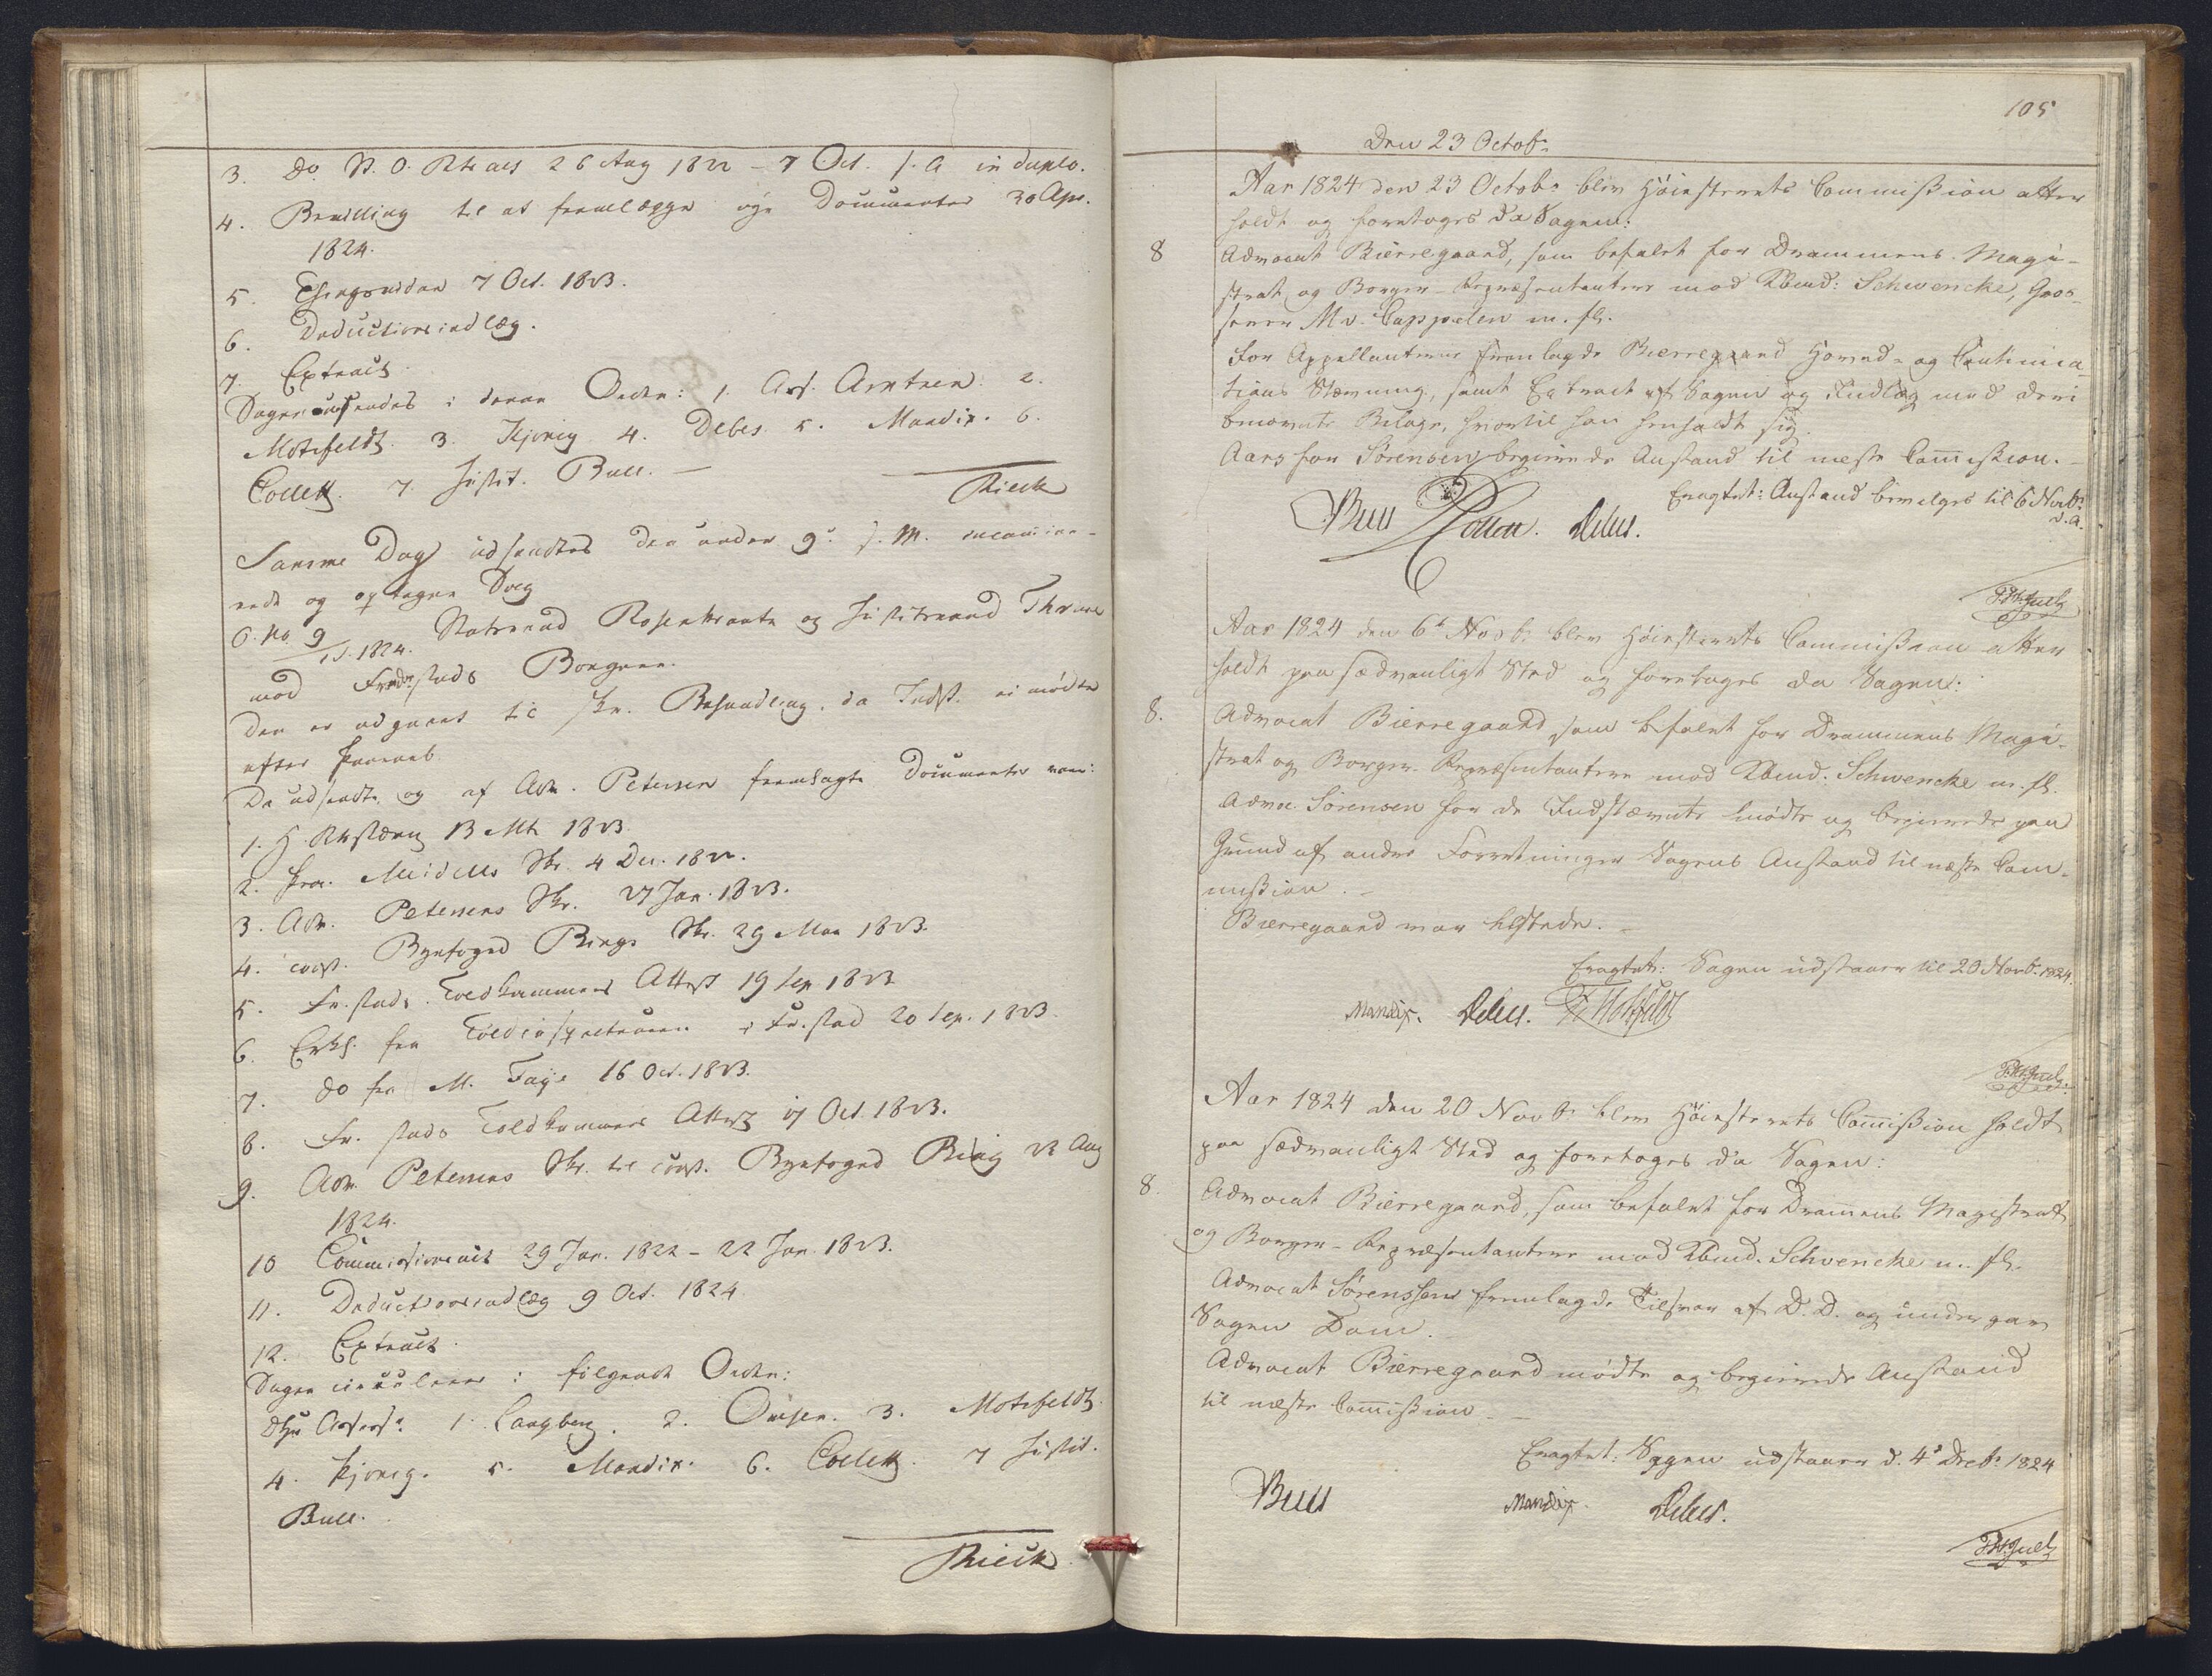 3. Do. N. O. Rts acs 26 Aug 1822 - 7 Oct. s. A in duplo.
4. Bevilling til at fremlægge nye Documenter 30 Apr.
1824.
5. Thingsvidne 7 Oct. 1823.
6. Deductionsindlæg.
7. Extract.
Sagen udsendes i denne Orden: 1. Ass. Arntzen. 2.
Motzfeldt. 3. Kjønig 4. Debes 5. Mandix. 6.
Collett. 7. Justit. Bull. —
Rieck
Samme Dag udsendtes den under 9de s. M. incaminerede
og optagne Sag
C. No. 9 / 1 S. 1824. Statsraad Rosenkrantz og Justitsraad Thrane
mod Fredrstads Borgere.
Den er udgaaet til skr. Behandling, da Indst. ei mødte
efter Paaraab
De udsendte og af Adv. Petersen fremlagte Documenter vare:
1. H. Rtsstævng 13 Mts 1823.
2. Proc. Meidells Skr. 4 Dec. 1822.
3. Adv. Petersens Skr. 27 Jan. 1823.
4. const. Byefoged Rings Skr. 29 Mai 1823.
5. Fr.stads Toldkammers Attest 19 Sep 1823
6. Erkl. fra Toldinspecteuren i Fr.stad 20 Sep. 1823.
7. Do fra M. Faye 16 Oct. 1823.
8. Fr.stads Toldkammers Attest 17 Oct. 1823.
9. Adv. Petersens Skr. til const. Byefoged Ring 23 Aug
1824.
10 Commissionsact 29 Jan. 1822 - 22 Jan. 1823.
11. Deductionsindlæg 9 Oct. 1824.
12. Extract.
Sagen circulerer i følgende Orden:
Assess. 1. Langberg. 2. Omsen. 3. Motzfeldt
4. Kjønig. 5. Mandix. 6. Collett. 7 Justit.
Bull.
Rieck
105
Den 23 Octobr
Aar 1824 den 23 Octobr blev Höiesterets Commission atter
holdt og foretoges da Sagen:
8 Advocat Bierregaard, som befalet for Drammens Magi-
strat og Borger-Repræsentantere mod Kbmd: Schwencke, Gros-
serer Mv. Cappelen m. fl.
For Appellanterne fremlagde Bierregaard Hoved- og Continua-
tions Stævning, samt Extract af Sagen og Indlæg med deri
benævnte Bilage, hvortil han henholdt sig.
Aars for Sørensen begierede Anstand til næste Commission. –
Eragtet: Anstand bevilges til 6 Novbr
d. A.
Bull Collett. Debes.
P. W. Juell
Aar 1824 den 6te Novbr blev Höiesterets Commission atter
holdt paa sædvanligt Sted og foretoges da Sagen:
8. Advocat Bierregaard som befalet for Drammens Magi-
strat og Borger-Repræsentantere mod Kbmd: Schwencke m. fl.
Advoc. Sörensen for de Indstævnte mødte og begierede paa
Grund af andre Forretninger Sagens Anstand til næste Com-
mission. –
Bierregaard var tilstede. –
Eragtet: Sagen udstaaer til 20 Novbr. 1824.
Mandix. Debes. Motzfeldt
P. W. Juell
Aar 1824 den 20 Novbr blev Höiesterets Commission holdt
paa sædvanligt Sted og foretoges da Sagen:
8. Advocat Bierregaard, som befalet for Dramens Magistrat
og Borger-Repræsentantere mod Kbmd. Schwencke m. fl.
Advocat Sörenssen fremlagde Tilsvar af D. D. og undergav
Sagen Dom.
Advocat Bierregaard mødte og begierede Anstand
til næste Commission –
Eragtet: Sagen udstaaer d. 4de Decbr 1824
Bull Mandix. Debes.
P. W. Juell